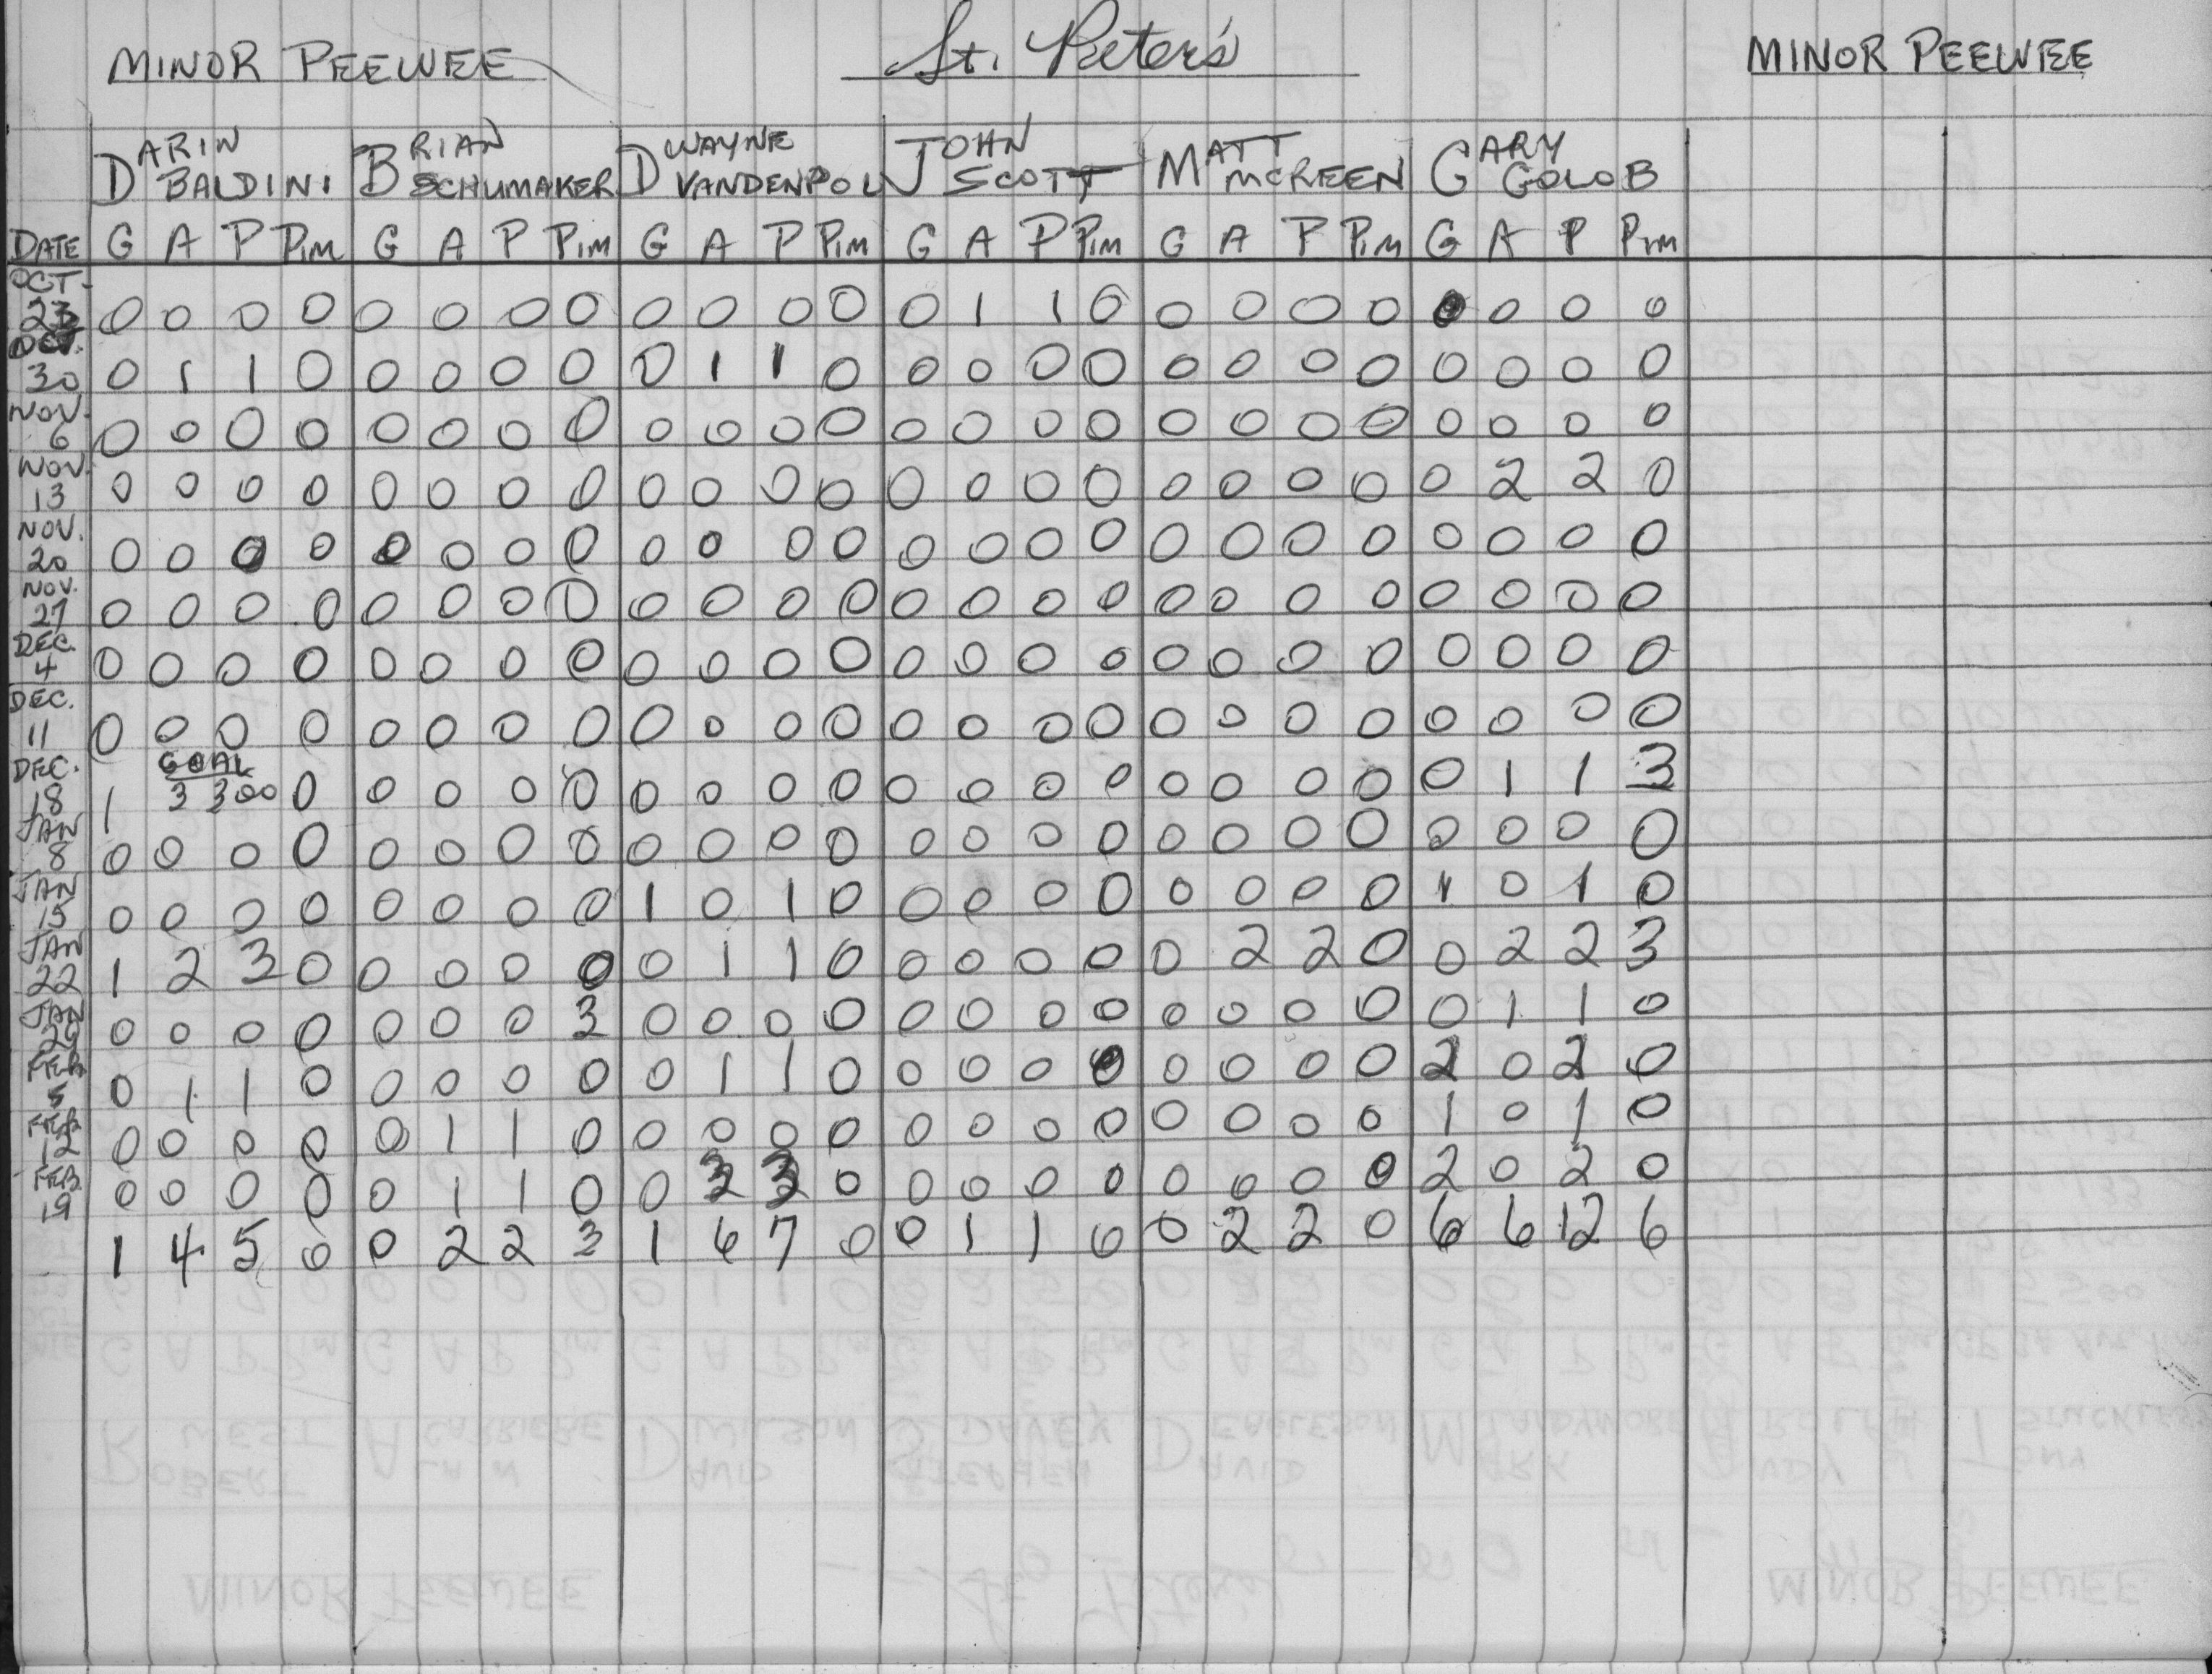 MINOR PEEWEE St. Peter's MINOR PEEWEE
DARIN BALDINI BRIAN SCHUMAKER DWAYNE VANDENPOL JOHN SCOTT MATT MCREEN GARY GOLOB
DATE G A P PIM G A P PIM G A P PIM G A P PIM G A P PIM G A P PIM
OCT. 23 0 0 0 0 0 0 0 0 0 0 0 0 0 1 1 0 0 0 0 0 0 0 0 0
OCT. 30 0 1 1 0 0 0 0 0 0 1 1 0 0 0 0 0 0 0 0 0 0 0 0 0
NOV. 6 0 0 0 0 0 0 0 0 0 0 0 0 0 0 0 0 0 0 0 0 0 0 0 0
NOV. 13 0 0 0 0 0 0 0 0 0 0 0 0 0 0 0 0 0 0 0 0 0 2 2 0
NOV. 20 0 0 0 0 0 0 0 0 0 0 0 0 0 0 0 0 0 0 0 0 0 0 0 0
NOV. 27 0 0 0 0 0 0 0 0 0 0 0 0 0 0 0 0 0 0 0 0 0 0 0 0
DEC. 4 0 0 0 0 0 0 0 0 0 0 0 0 0 0 0 0 0 0 0 0 0 0 0 0
DEC. 11 0 0 0 0 0 0 0 0 0 0 0 0 0 0 0 0 0 0 0 0 0 0 0 0
DEC. 18 1 GOAL 3 300 0 0 0 0 0 0 0 0 0 0 0 0 0 0 0 0 0 0 1 1 3
JAN 8 0 0 0 0 0 0 0 0 0 0 0 0 0 0 0 0 0 0 0 0 0 0 0 0
JAN 15 0 0 0 0 0 0 0 0 1 0 1 0 0 0 0 0 0 0 0 0 1 0 1 0
JAN 22 1 2 3 0 0 0 0 0 0 1 1 0 0 0 0 0 0 2 2 0 0 2 2 3
JAN 29 0 0 0 0 0 0 0 3 0 0 0 0 0 0 0 0 0 0 0 0 0 1 1 0
FEB 5 0 1 1 0 0 0 0 0 0 1 1 0 0 0 0 0 0 0 0 0 2 0 2 0
FEB 12 0 0 0 0 0 1 1 0 0 0 0 0 0 0 0 0 0 0 0 0 1 0 1 0
FEB. 19 0 0 0 0 0 1 1 0 0 3 3 0 0 0 0 0 0 0 0 0 2 0 2 0
1 4 5 0 0 2 2 3 1 6 7 0 0 1 1 0 0 2 2 0 6 6 12 6